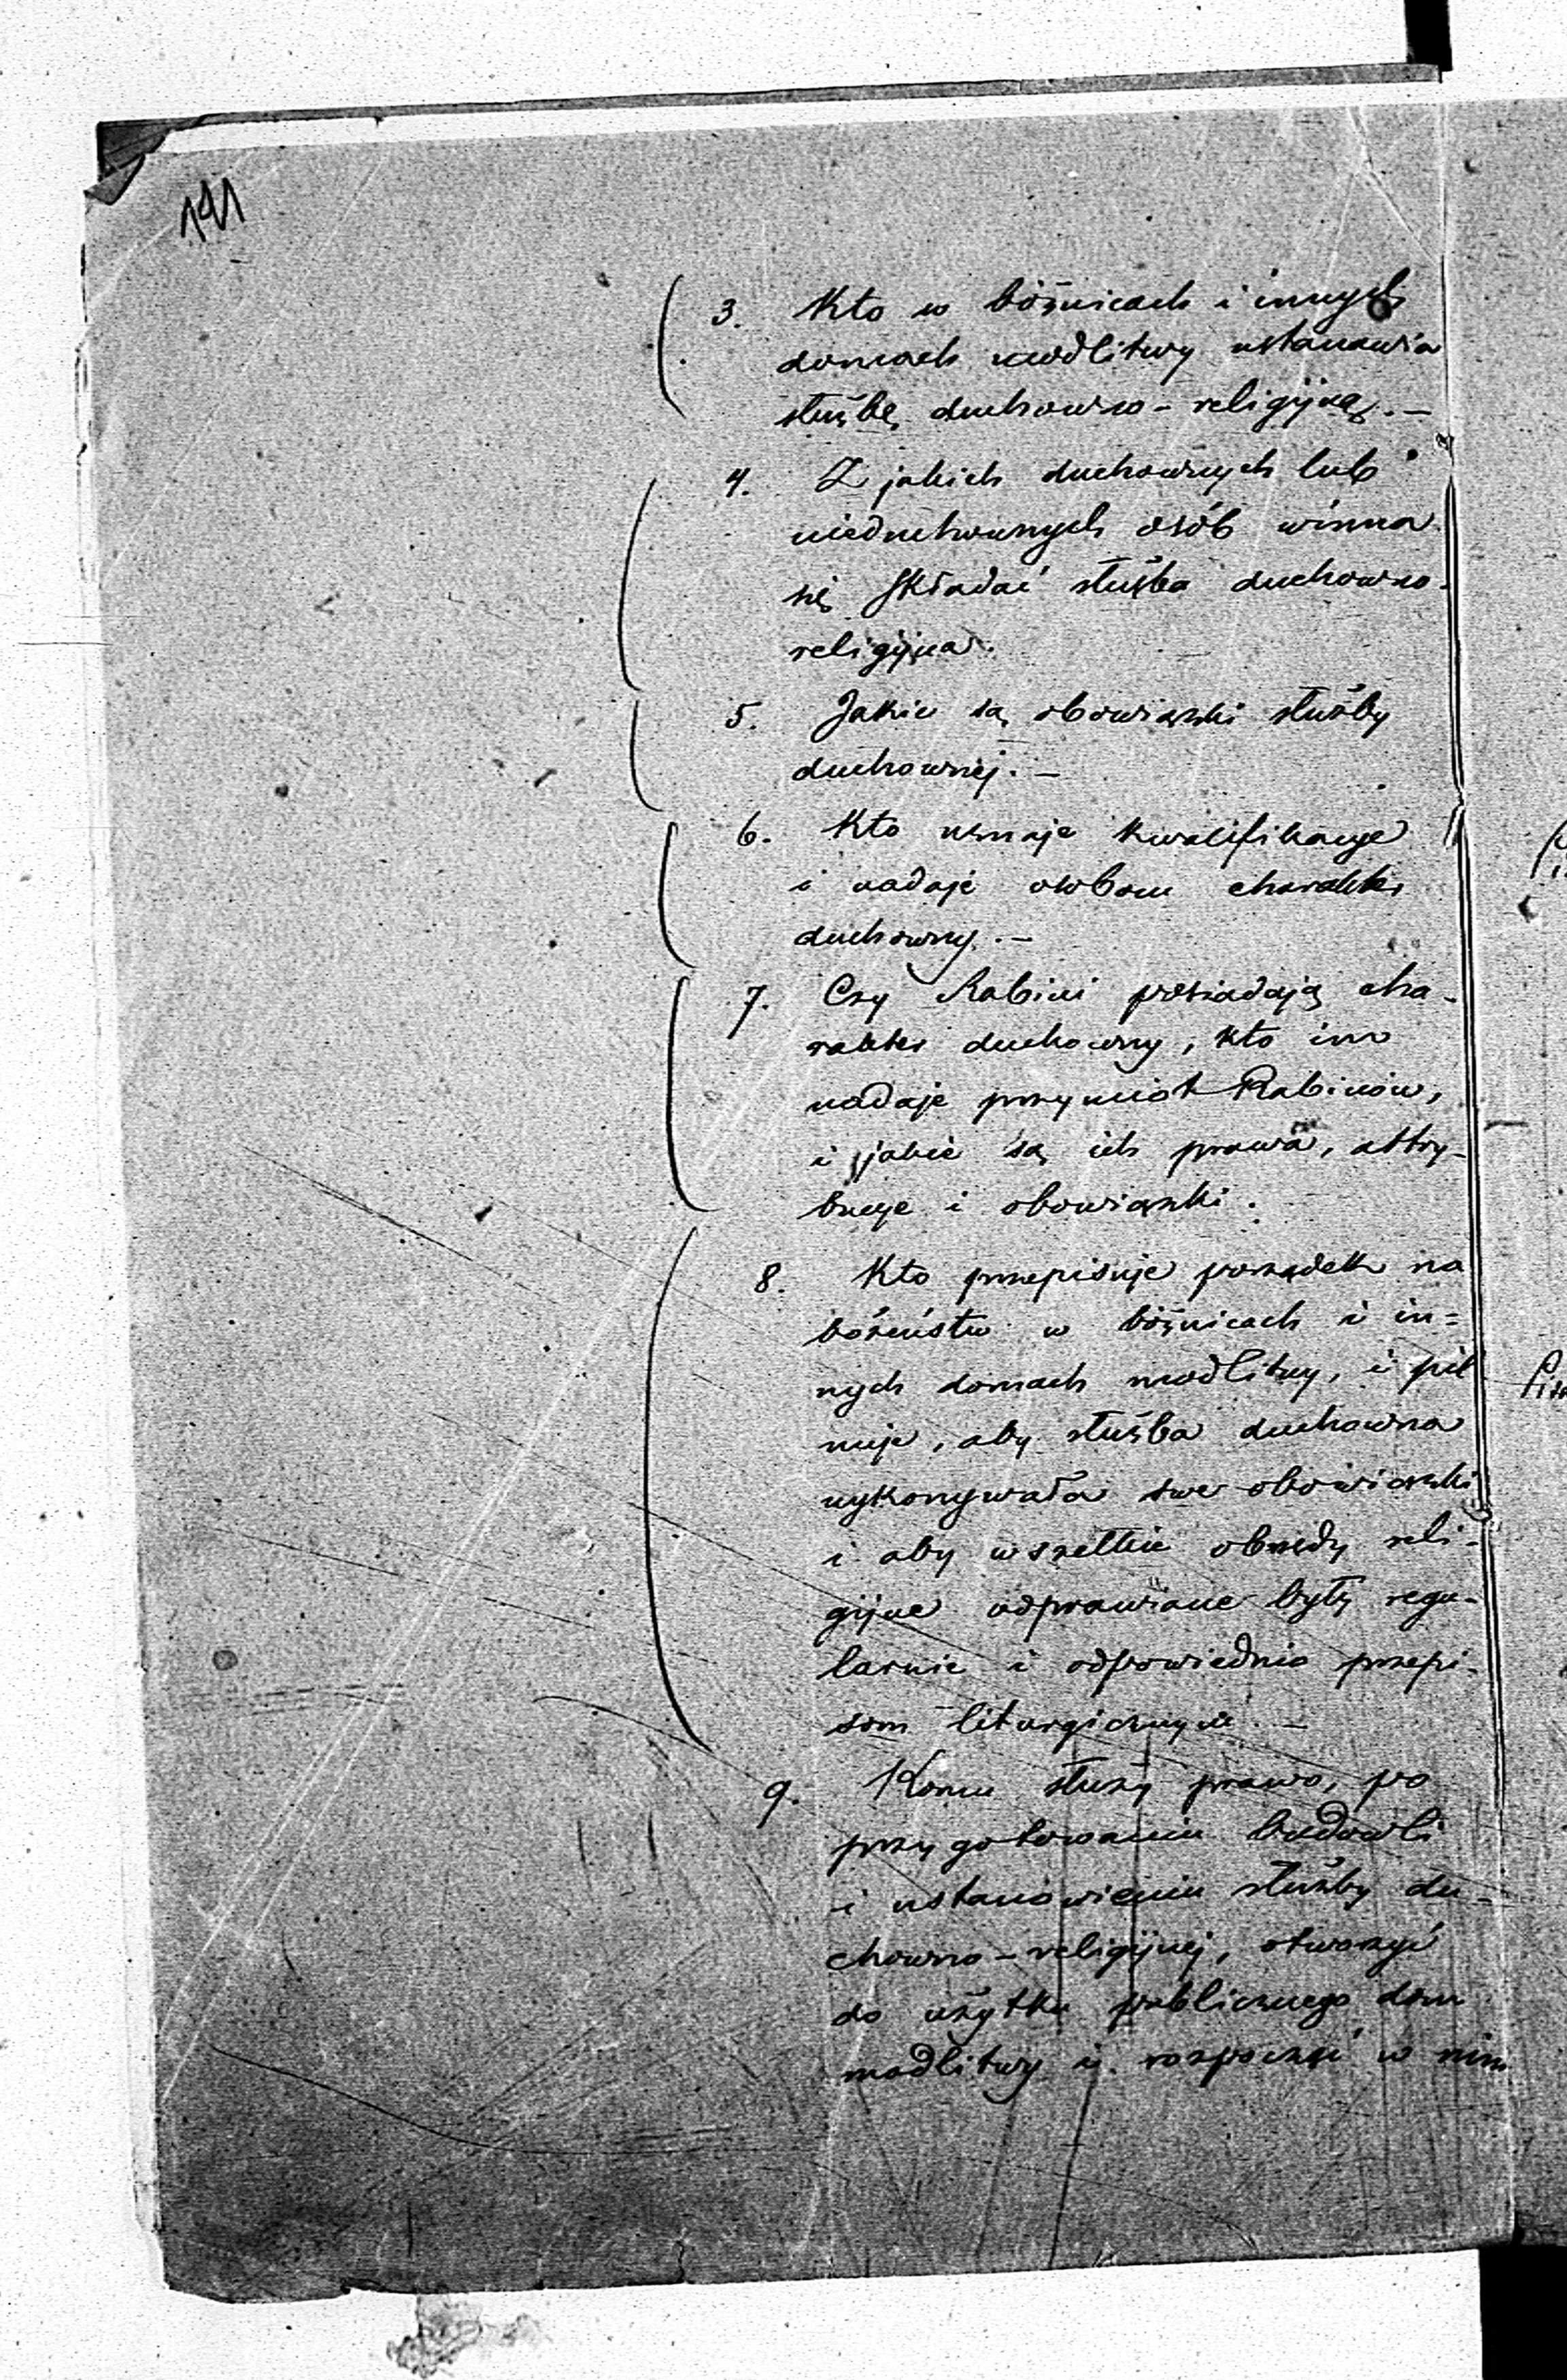 141
3. Kto w bóżnicach i innych
domach modlitwy ustanawia
służbę duchowno-religijną.—
4. Z jakich duchownych lub
nieduchownych osób winna
się składać służba duchowno-
religijna.
5. Jakie są obowiązki służby
duchownej.—
6. Kto uznaje kwalifikacye
i nadaje osobom charakter
duchowny.—
7. Czy Rabini posiadają cha-
rakter duchowny, kto im
nadaje przymiot Rabinów,
i jakie są ich prawa, attry-
bucye i obowiązki.
8. Kto przepisuje porządek na
bożeństw w bóżnicach i in=
nych domach modlitwy, i pil
nuje, aby służba duchowna
wykonywała swe obowiązki
i aby wszelkie obrzędy reli-
gijne odprawiane były regu-
larnie i odpowiednio przepi-
som liturgicznym.—
9. Komu służy prawo, po
przygotowaniu budowli
i ustanowieniu służby du-
chowno-religijnej, otworzyć
do użytku publicznego dom
modlitwy i rozpocząć w nim